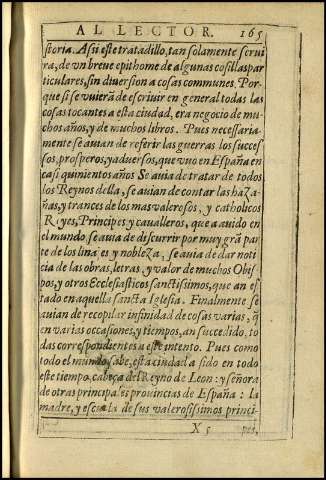 AL LECTOR. 165
storia. Asi este tratadillo, tan solamente serui
ra, de vn breue epithome de algunas cosillas par
ticulares, sin diuersion a cosas communes. Por-
que si se vuierã de escriuir en general todas las
cosas tocantes a esta ciudad, era negocio de mu-
chos años, y de muchos libros. Pues necessaria-
mente se auian de referir las guerras los succes-
sos, prosperos, y aduersos, que vuo en España en
casi quinientos años Se auia de tratar de todos
los Reynos della, se auian de contar las haza-
ñas, y trances de los mas valerosos, y catholicos
Reyes, Principes y caualleros, que a auido en
el mundo se auia de discurrir por muy grã par
te de los linajes y nobleza, se auia de dar noti
cia de las obras, letras, y valor de muchos Obis-
pos, y otros Ecclesiasticos sanctissimos, que an es
tado en aquella sancta Iglesia. Finalmente se
auian de recopilar infinidad de cosas varias, q̃
en varias occasiones, y tiempos, an succedido, to
das correspondientes a este intento. Pues como
todo el mundo sabe, esta ciudad a sido en todo
este tiempo, cabeça del Reyno de Leon: y señora
de otras principales prouincias de España: la
madre, y escuela de sus valerosissimos princi-
X 5 pes,